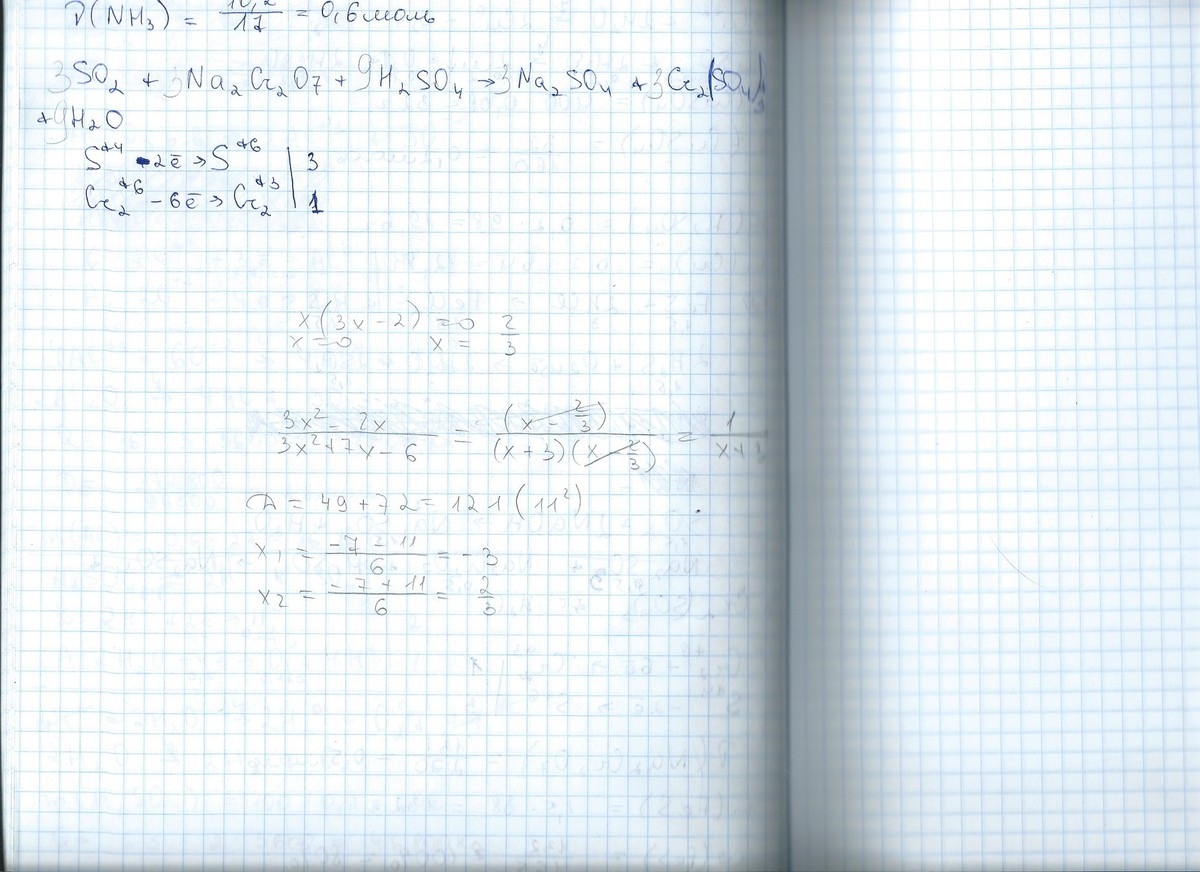 ν(NH₃) = 10,2/17 = 0,6 моль
3SO₂ + 3Na₂Cr₂O₇ + 9H₂SO₄ → 3Na₂SO₄ + 3Cr₂(SO₄)₃
+ 9H₂O
S⁺⁴ - 2ē → S⁺⁶ | 3
Cr₂⁺⁶ - 6ē → Cr₂⁺³ | 1
x(3x - 2) = 0 2/3
x = 0 x =
3x² - 2x / 3x² + 7x - 6 = (x - 2/3) / (x + 3)(x - 2/3) = 1 / x+3
D = 49 + 72 = 121 (11²)
x₁ = -7 - 11 / 6 = -3
x₂ = -7 + 11 / 6 = 2/3